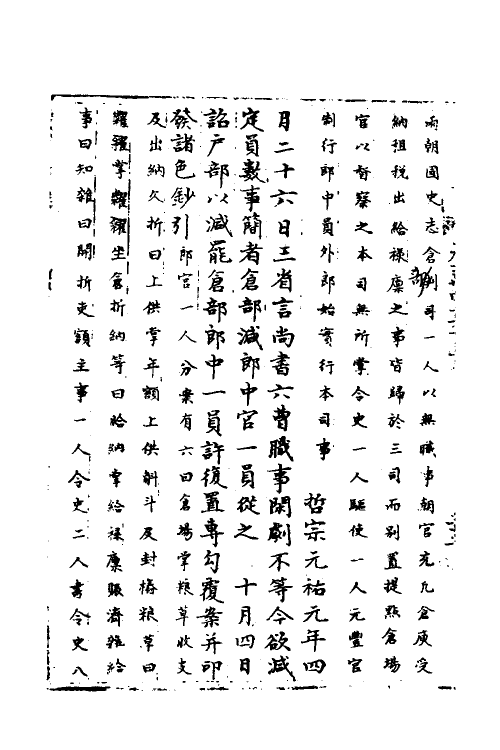 兩朝國史志倉部判司一人以無職事朝官充凡倉庾受
納租税出給祿廪之事皆歸於三司而别置提㸃倉塲
官以督察之本司無所掌令史一人驅使一人元豐官
制行郎中員外郎始實行本司事
哲宗元祐元年四
月二十六日三省言尚書六曹職事閑劇不等今欲減
定員數事簡者倉部減郎中官一員從之　十月四日
詔户部以減罷倉部郎中一員許復置專勾覆案并印
發諸色鈔引郎官一人分案有六曰倉塲掌粮草收支
及出納欠折曰上供掌年額上供斛斗及封樁粮草曰
糶糴掌糶糴坐倉折納等曰給納掌給祿廪賑濟雜給
事曰知雜曰開折吏額主事一人令史二人書令史八